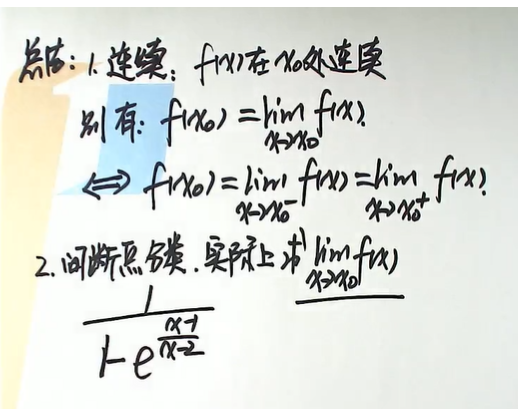 总结: 1. 连续: f(x)在x₀处连续
则有: f(x₀) = lim_{x→x₀} f(x).
⟺ f(x₀) = lim_{x→x₀⁻} f(x) = lim_{x→x₀⁺} f(x).
2. 间断点分类. 实际上求 lim_{x→x₀} f(x)
1/(1-e^{(x-1)/(x-2)})